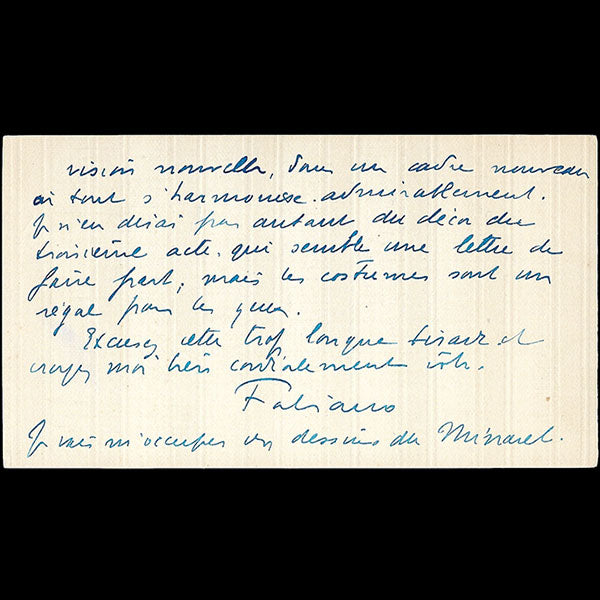 vision nouvelle, dans un cadre nouveau
où tout s'harmonise admirablement.
Je n'en dirai pas autant du décor du
troisième acte qui semble une lettre de
faire part, mais les costumes sont un
régal pour les yeux.
Excusez cette trop longue tirade et
croyez moi très cordialement vôtre.
Fabiano
Je vais m'occuper des dessins du Minaret.